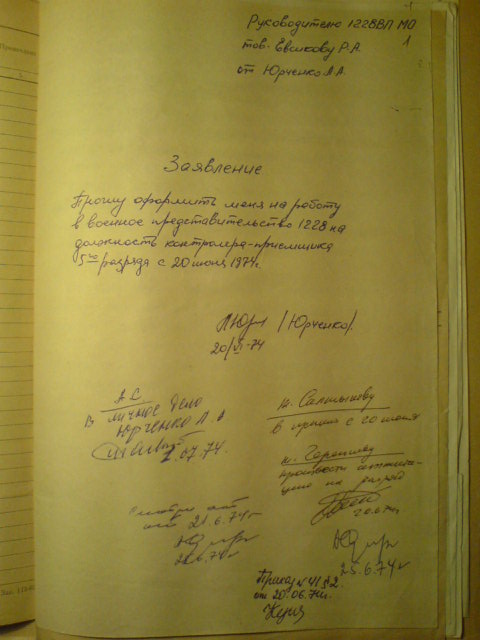 Руководителю 1228ВП МО
тов. Евсикову Р.А.
от Юрченко Л.А.
1
Заявление
Прошу оформить меня на работу
в военное представительство 1228 на
должность контролера-приемщика
5го разряда с 20 июня 1974г.
ЛЮрч /Юрченко/.
20/VI-74
В личное дело
Юрченко Л.А
1.07.74.
т. Салтыкову
В приказ с 20 июня
т.
провести аттеста-
цию на разряд
20.6.74г
21.6.74г
25.6.74г
25.6.74г
Приказ №
от 20.06.74г.